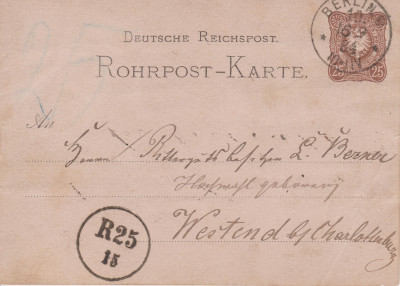 BERLIN
25 25
DEUTSCHE REICHSPOST.
ROHRPOST-KARTE.
An
Herrn Rittergutsbesitzer L. Berner
Hochwohlgeboren
Westend b/ Charlottenburg
R25
15